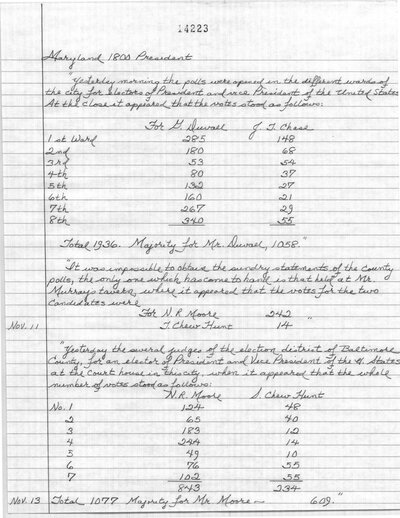 14223
Maryland 1800 President
"Yesterday morning the polls were opened in the different wards of
the city for electors of President and vice President of the United States
At the close it appeared that the votes stood as follows:
For G. Duvall J. T. Chase
1st Ward 285 148
2nd 180 68
3rd 53 54
4th 80 37
5th 132 27
6th 160 21
7th 267 29
8th 340 55
Total 1936. Majority for Mr. Duvall, 1058."
"It was impossible to obtain the sundry statements of the County
polls, the only one which has come to hand is that held at Mr.
Murrays tavern, where it appeared that the votes for the two
Candidates were
For N. R. Moore 242
Nov. 11 J. Chew Hunt 14 "
"Yesterday the several judges of the election district of Baltimore
County, for an elector of President and Vice President of the U. States
at the Court house in this city, when it appeared that the whole
number of votes stood as follows:
N. R. Moore S. Chew Hunt
No. 1 124 48
2 65 40
3 183 12
4 244 14
5 49 10
6 76 55
7 102 55
843 234
Nov. 13 Total 1077 Majority for Mr Moore — 609."